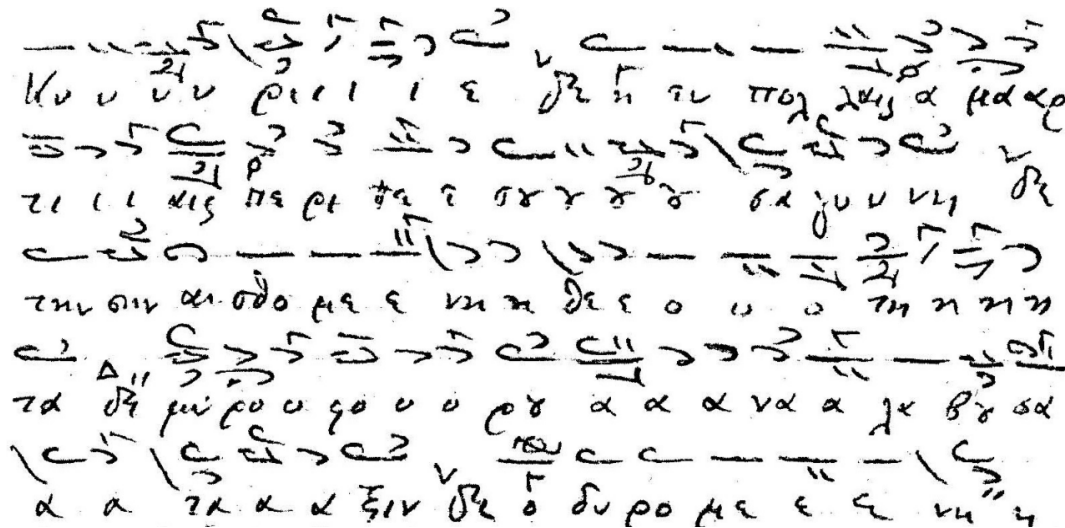 Κυ υ υ υ ρι ι ι ι ε η εν πολ λαις α μα αρ
τι ι ι αις πε ρι πε ε σȣ ȣ ȣ ȣ σα γυ υ νη
την σην αι σθο με ε νη η θε ε ο ο ο τη η η η
τα μυ ρο ο φο ο ο ρȣ α α α να α λα βȣ σα
α α τα α α ξιν ὁ δυ ρο με ε ε νη η